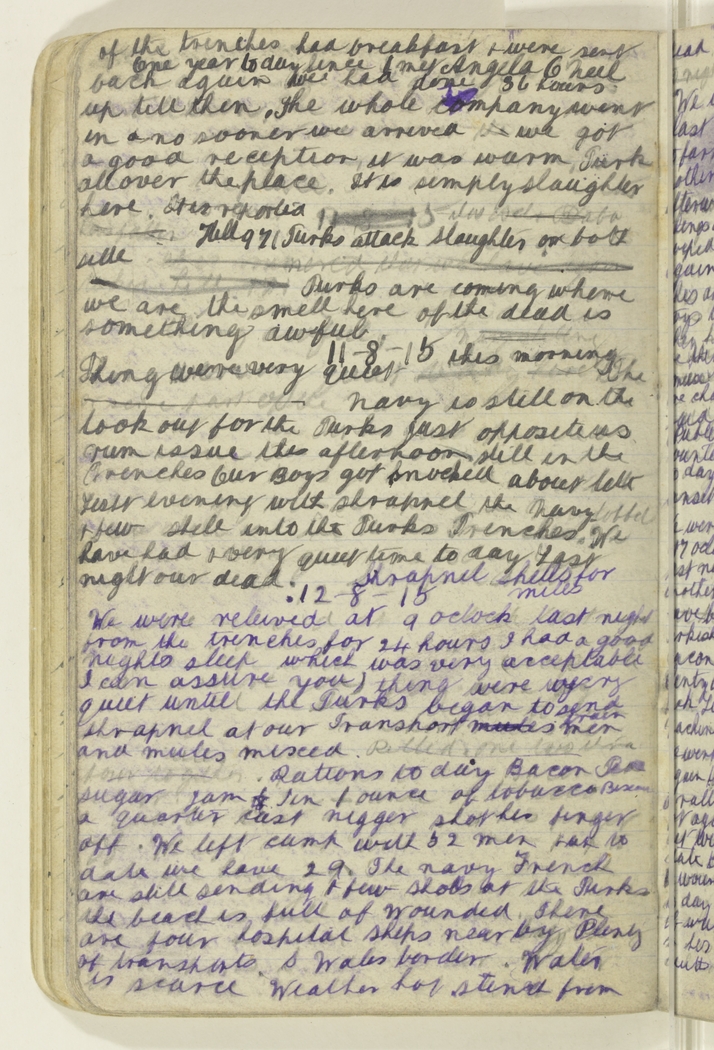 of the trenches had breakfast & were sent
One year today since I met Angela O Neil
back again we had done 36 hours
up till then. The whole company went
in & no sooner we arrived we got
a good reception it was warm Turk
all over the place. It is simply slaughter
here. It is reported
Hill 971 Turks attack slaughter on both
side
Turks are coming where
we are the smell here of the dead is
something awful.
11-8-15
Thing were very quiet this morning The
navy is still on the
look out for the Turks just opposite us
rum issue this afternoon still in the
Trenches Our Boys got knocked about
last evening with shrapnel the Navy
a few shell into the Turks Trenches. We
have had a very quiet time to day Last
night our dead. Shrapnel Shells for
.12-8-15 miles
We were relieved at 9 oclock last night
from the trenches for 24 hours I had a good
nights sleep which was very acceptable
I can assure you) thing were very
quiet until the Turks began to send
shrapnel at our Transport mules men
and mules missed.
Rations to day Bacon Tea
sugar jam 1 tin 1 ounce of tobacco
a quarter last nigger shot his finger
off. We left camp with 52 men to
date we have 29. The navy French
are still sending a few shots at the Turks
the beach is full of wounded. There
are four hospital ships near by Plenty
of transports. S Wales border. Water
is scarce. Weather hot stench from